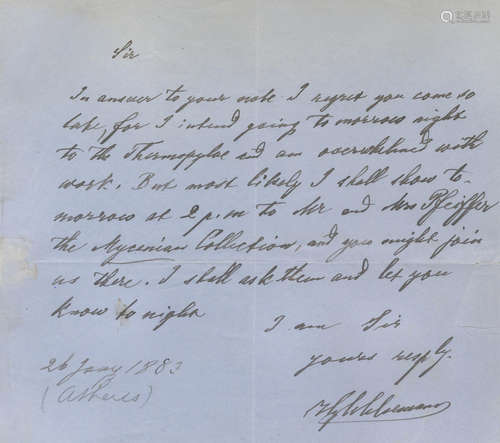 Sir
In answer to your note I regret you come so
late, for I intend going to morrow night
to the Thermopylae and am overwhelmed with
work. But most likely I shall show to-
morrow at 2 p.m to Mr and Mrs Pfeiffer
the Mycenian Collection, and you might join
us there. I shall ask them and let you
know to night
I am Sir
yours reply.
26 Jany 1883
(Athens)